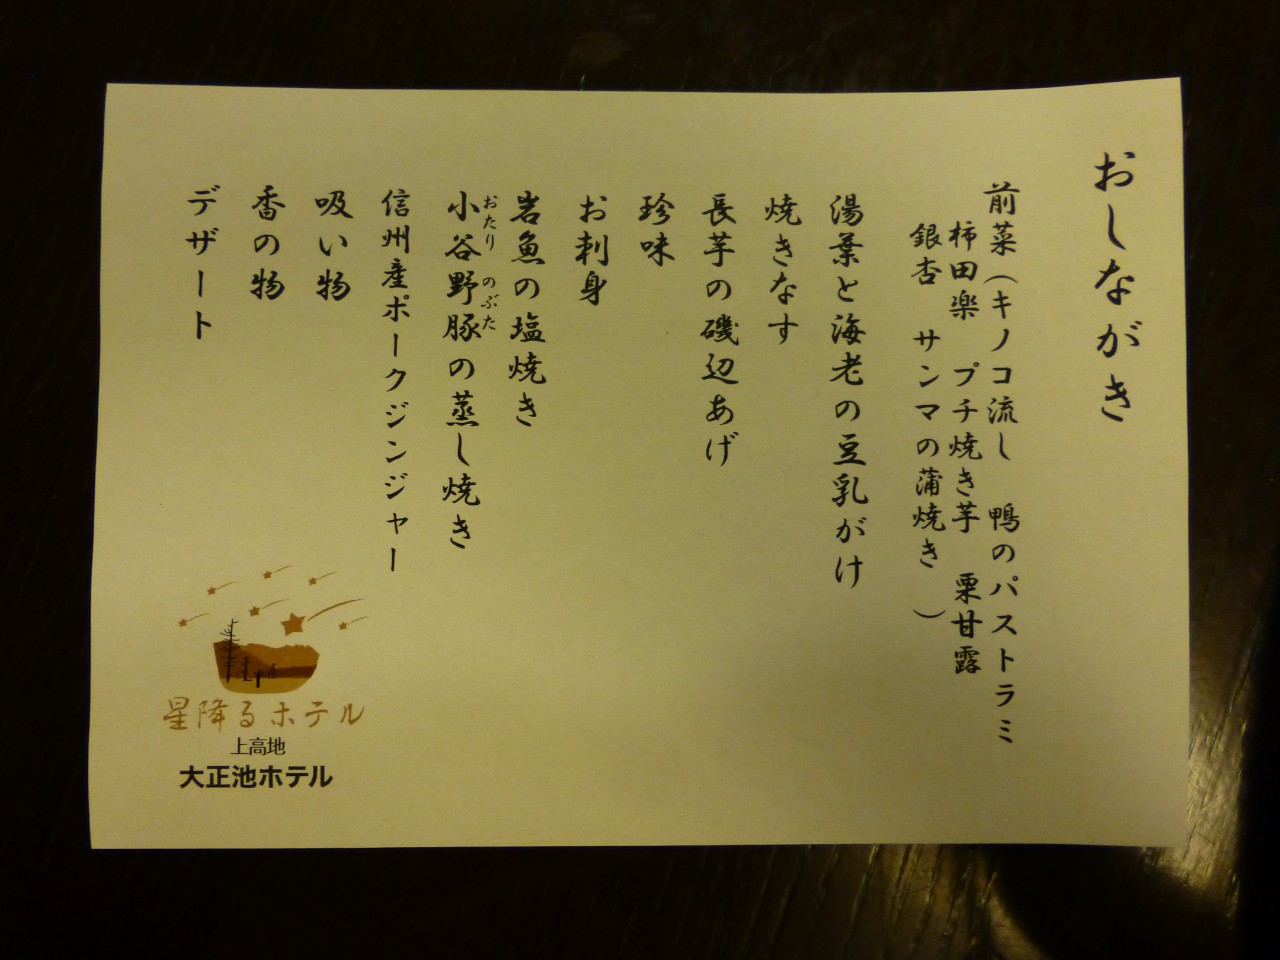 おしながき
前菜（キノコ流し　鴨のパストラミ
柿田楽　プチ焼き芋　栗甘露
銀杏　サンマの蒲焼き　）
湯葉と海老の豆乳がけ
焼きなす
長芋の磯辺あげ
珍味
お刺身
岩魚の塩焼き
おたり　のぶた
小谷野豚の蒸し焼き
信州産ポークジンジャー
吸い物
香の物
デザート
星降るホテル
上高地
大正池ホテル